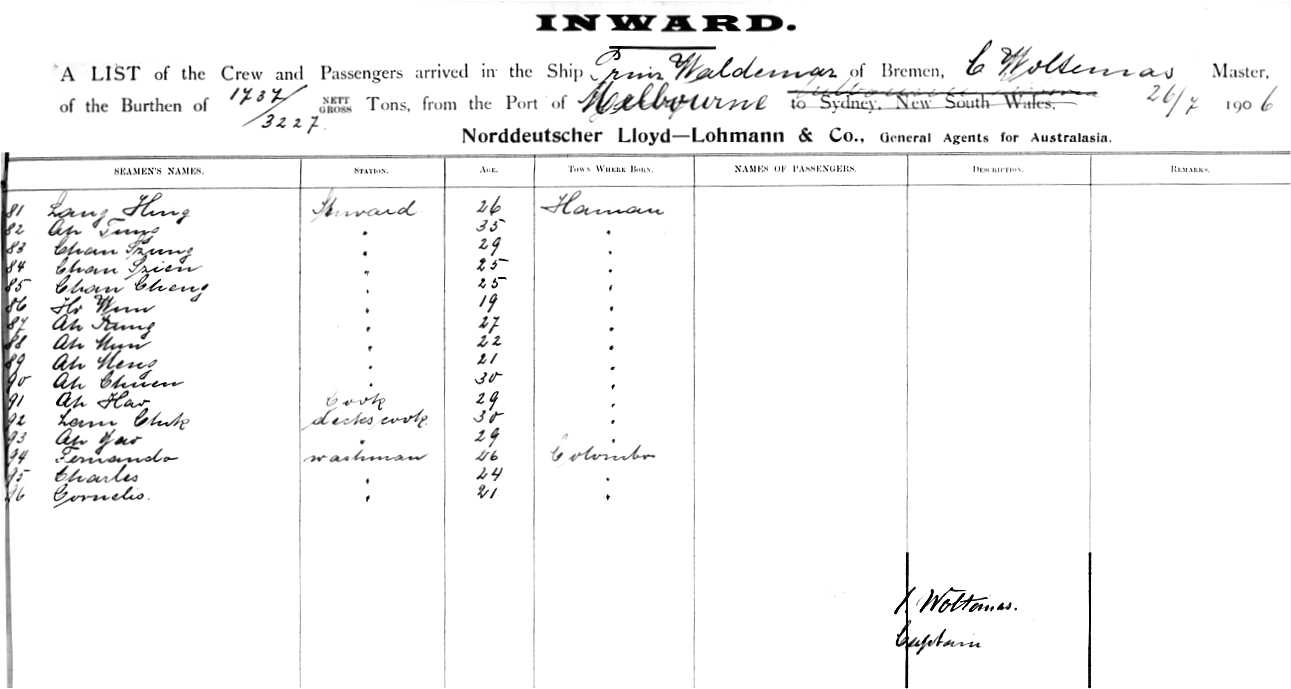 INWARD.
A LIST of the Crew and Passengers arrived in the Ship Prinz Waldemar of Bremen, C Woltemas Master,
of the Burthen of 1737/3227 NETT GROSS Tons, from the Port of Melbourne to Sydney, New South Wales, 26/7 1906
Norddeutscher Lloyd—Lohmann & Co., General Agents for Australasia.
SEAMEN'S NAMES. STATION. AGE. TOWN WHERE BORN. NAMES OF PASSENGERS. DESCRIPTION. REMARKS.
81 Lang Hing Steward 26 Hainan
82 Ah Tung " 35 "
83 Chan Tzung " 29 "
84 Chan Tzien " 25 "
85 Chan Cheng " 25 "
86 Ho Wun " 19 "
87 Ah Kung " 27 "
88 Ah Mun " 22 "
89 Ah Meng " 21 "
90 Ah Chuen " 30 "
91 Ah Hao Cook 29 "
92 Lam Chuk deckscook 30 "
93 Ah Yao " 29 "
94 Fernando washman 26 Colombo
95 Charles " 24 "
96 Cornelis. " 21 "
C. Woltemas.
Captain